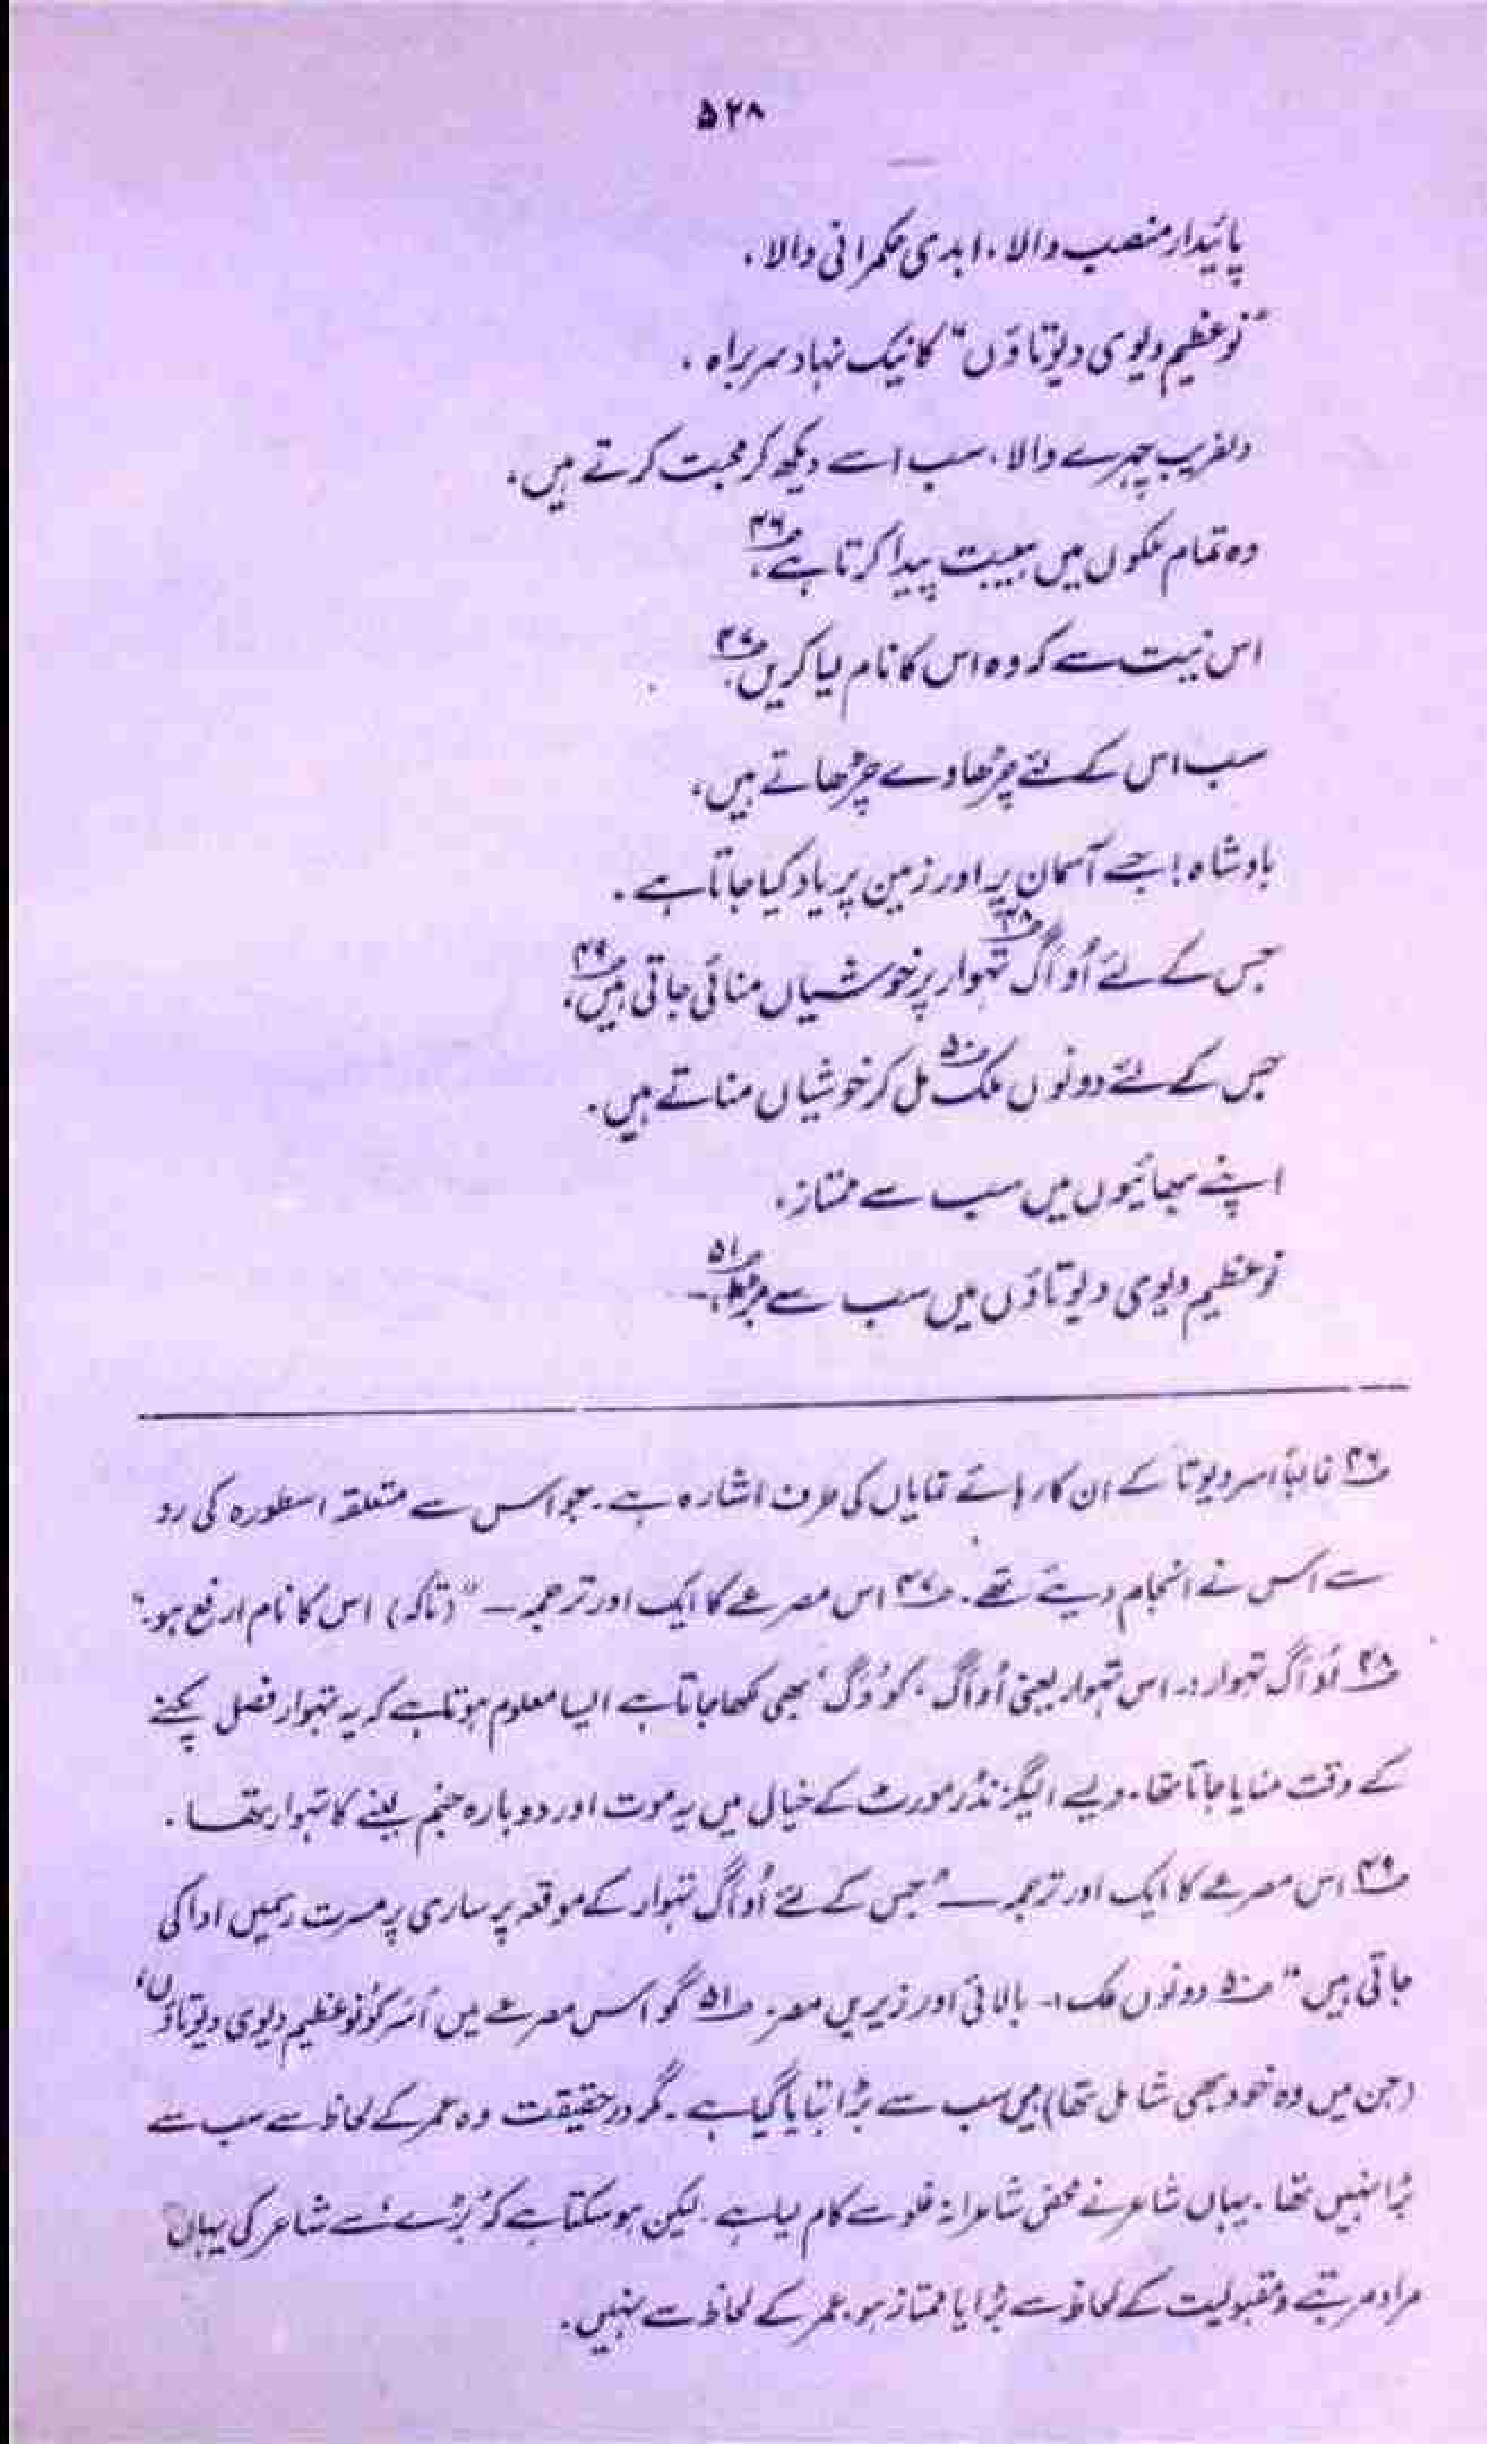 ۵۲۸
پائیدار منصب والا، ابدی حکمرانی والا،
"نو عظیم دیوی دیوتاؤں" کا نیک نہاد سربراہ،
دلفریب چہرے والا، سب اسے دیکھ کر محبت کرتے ہیں،
وہ تمام ملکوں میں ہیبت پیدا کرتا ہے،۴۶
اس نیت سے کہ وہ اس کا نام لیا کریں۴۷،
سب اس کے لئے چڑھاوے چڑھاتے ہیں،
بادشاہ! جسے آسمان پر اور زمین پر یاد کیا جاتا ہے۔
جس کے لئے اُواگ۴۸ تہوار پر خوشیاں منائی جاتی ہیں،۴۹
جس کے لئے دونوں ملک۵۰ مل کر خوشیاں مناتے ہیں۔
اپنے بھائیوں میں سب سے ممتاز،
نو عظیم دیوی دیوتاؤں میں سب سے بڑا،۵۱ ـ
۴۶ غالباً اسر دیوتا کے ان کارہائے نمایاں کی طرف اشارہ ہے۔ جو اس سے متعلقہ اسطورہ کی رو
سے اس نے انجام دیئے تھے۔ ۴۷ اس مصرعے کا ایک اور ترجمہ ـ "(تاکہ) اس کا نام ارفع ہو۔"
۴۸ اُواگ تہوار:۔ اس تہوار یعنی اُواگ، کو 'وَگ' بھی لکھا جاتا ہے ایسا معلوم ہوتا ہے کہ یہ تہوار فصل پکنے
کے وقت منایا جاتا تھا۔ ویسے الیگزنڈر مورٹ کے خیال میں یہ موت اور دوبارہ جنم لینے کا تہوار تھا۔
۴۹ اس مصرعے کا ایک اور ترجمہ ـ "جس کے لئے اُواگ تہوار کے موقعہ پر ساری پر مسرت رسمیں ادا کی
جاتی ہیں" ۵۰ دونوں ملک:۔ بالائی اور زیریں مصر۔ ۵۱ گو اس مصرعے میں اَسَر کو 'نو عظیم دیوی دیوتاؤں'
(جن میں وہ خود بھی شامل تھا) میں سب سے بڑا بتایا گیا ہے۔ مگر درحقیقت وہ عمر کے لحاظ سے سب سے
بڑا نہیں تھا۔ یہاں شاعر نے محض شاعرانہ غلو سے کام لیا ہے۔ لیکن ہو سکتا ہے کہ 'بڑے' سے شاعر کی یہاں
مراد مرتبے و مقبولیت کے لحاظ سے بڑا یا ممتاز ہو، عمر کے لحاظ سے نہیں۔